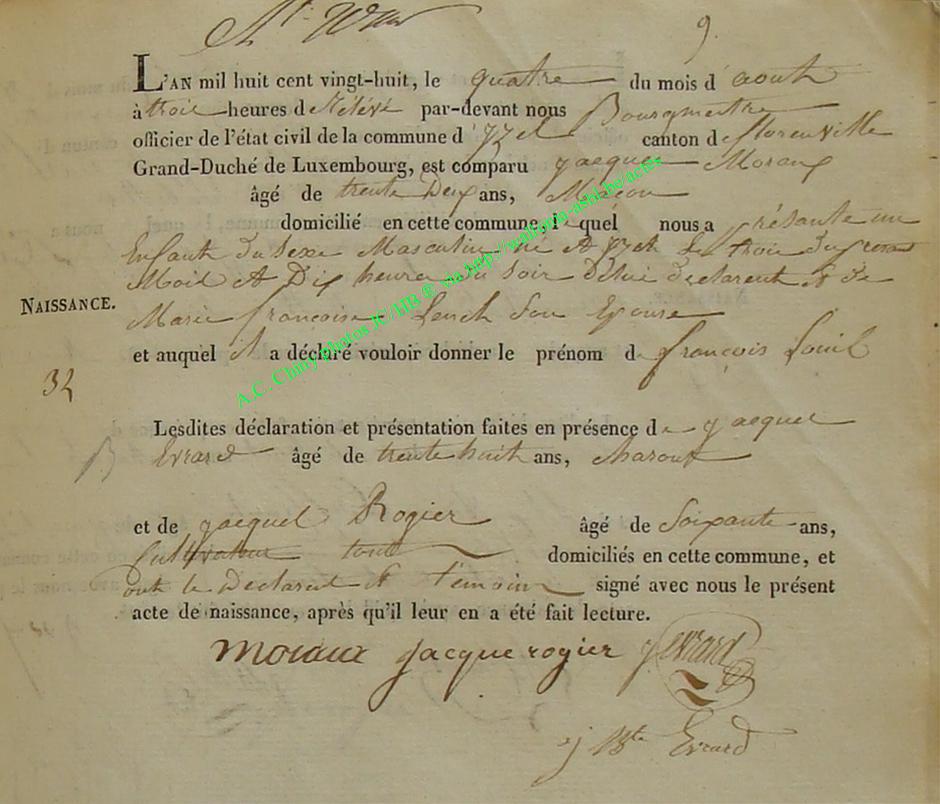 9.
L'AN mil huit cent vingt-huit, le quatre du mois d aout
à troi heures d Relévé par-devant nous Bourgmestre
officier de l'état civil de la commune d'yzel canton de florenville
Grand-Duché de Luxembourg, est comparu jacque Moraux
âgé de trente Deux ans, Macon
domicilié en cette commune lequel nous a présante un
Enfant du sexe Masculin né A yzel le troi du present
Moi A Dix heure du soir De lui declarent & de
NAISSANCE.
Marie françoise Lench Son Epouse
et auquel il a déclaré vouloir donner le prénom de françois Louis
32
Lesdites déclaration et présentation faites en présence de jacque
B Evrard âgé de trente huit ans, charont
et de jacque Rogier âgé de Soixante ans,
Cultivateur tout domiciliés en cette commune, et
ont le Declarent & témoin signé avec nous le présent
acte de naissance, après qu'il leur en a été fait lecture.
moraux jacque rogier j evrard
j Bte Evrard
A.C. Chiny photos JC/HB ® via http://wallonia-asbl.be/actes